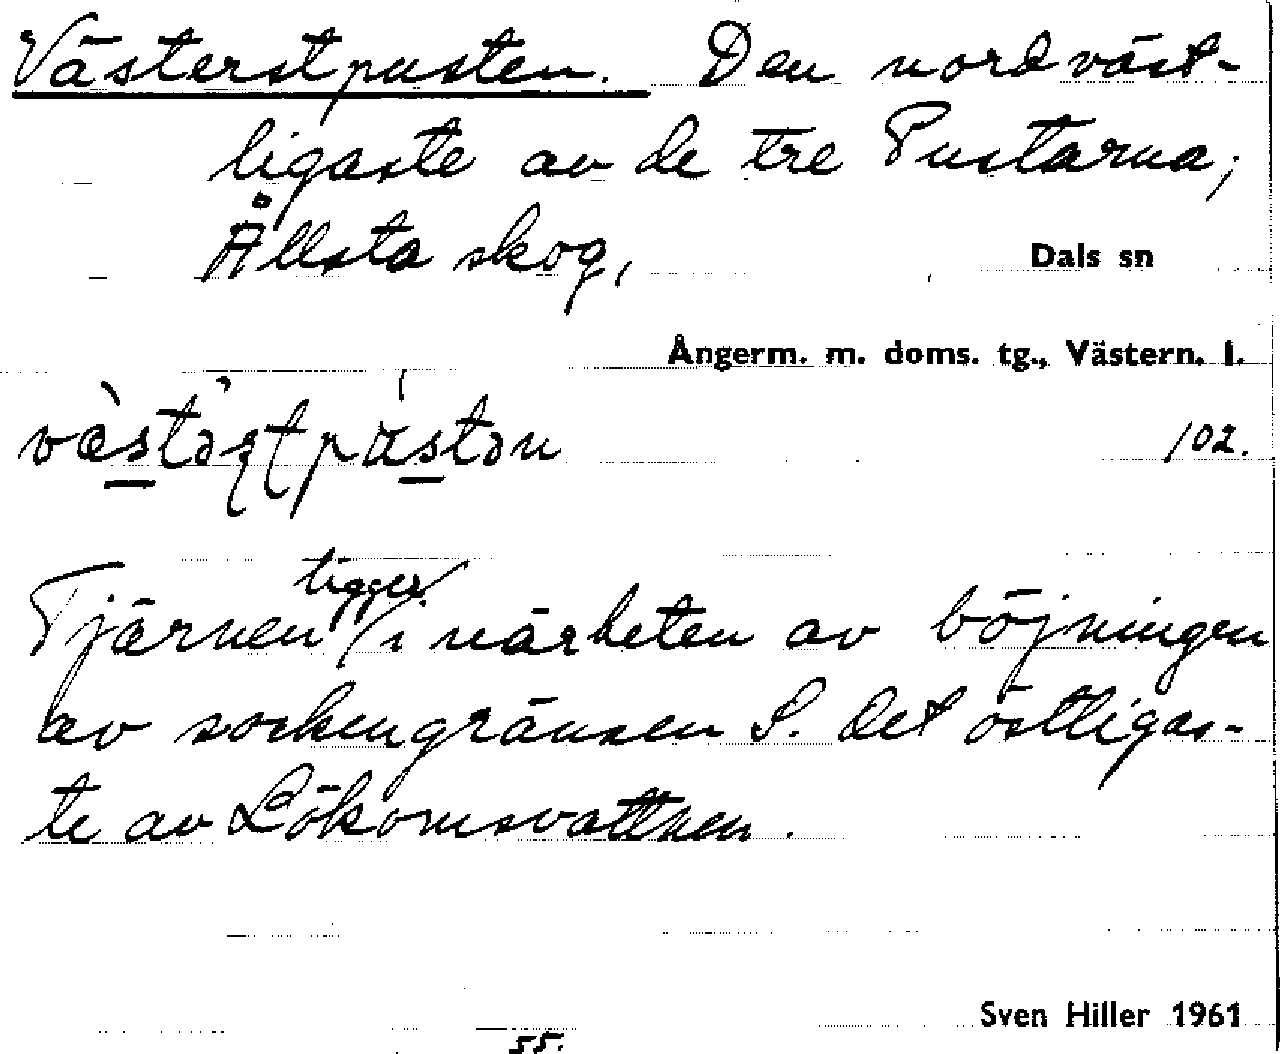 Västerstpusten. Den nordväst-
ligaste av de tre Pustarna;
Ållsta skog, Dals sn
Ångerm. m. doms. tg., Västern. l.
102.
Tjärnen ligger i närheten av böjningen
av sockengränsen S. det östligas-
te av Lökomsvattnen.
Sven Hiller 1961
55.